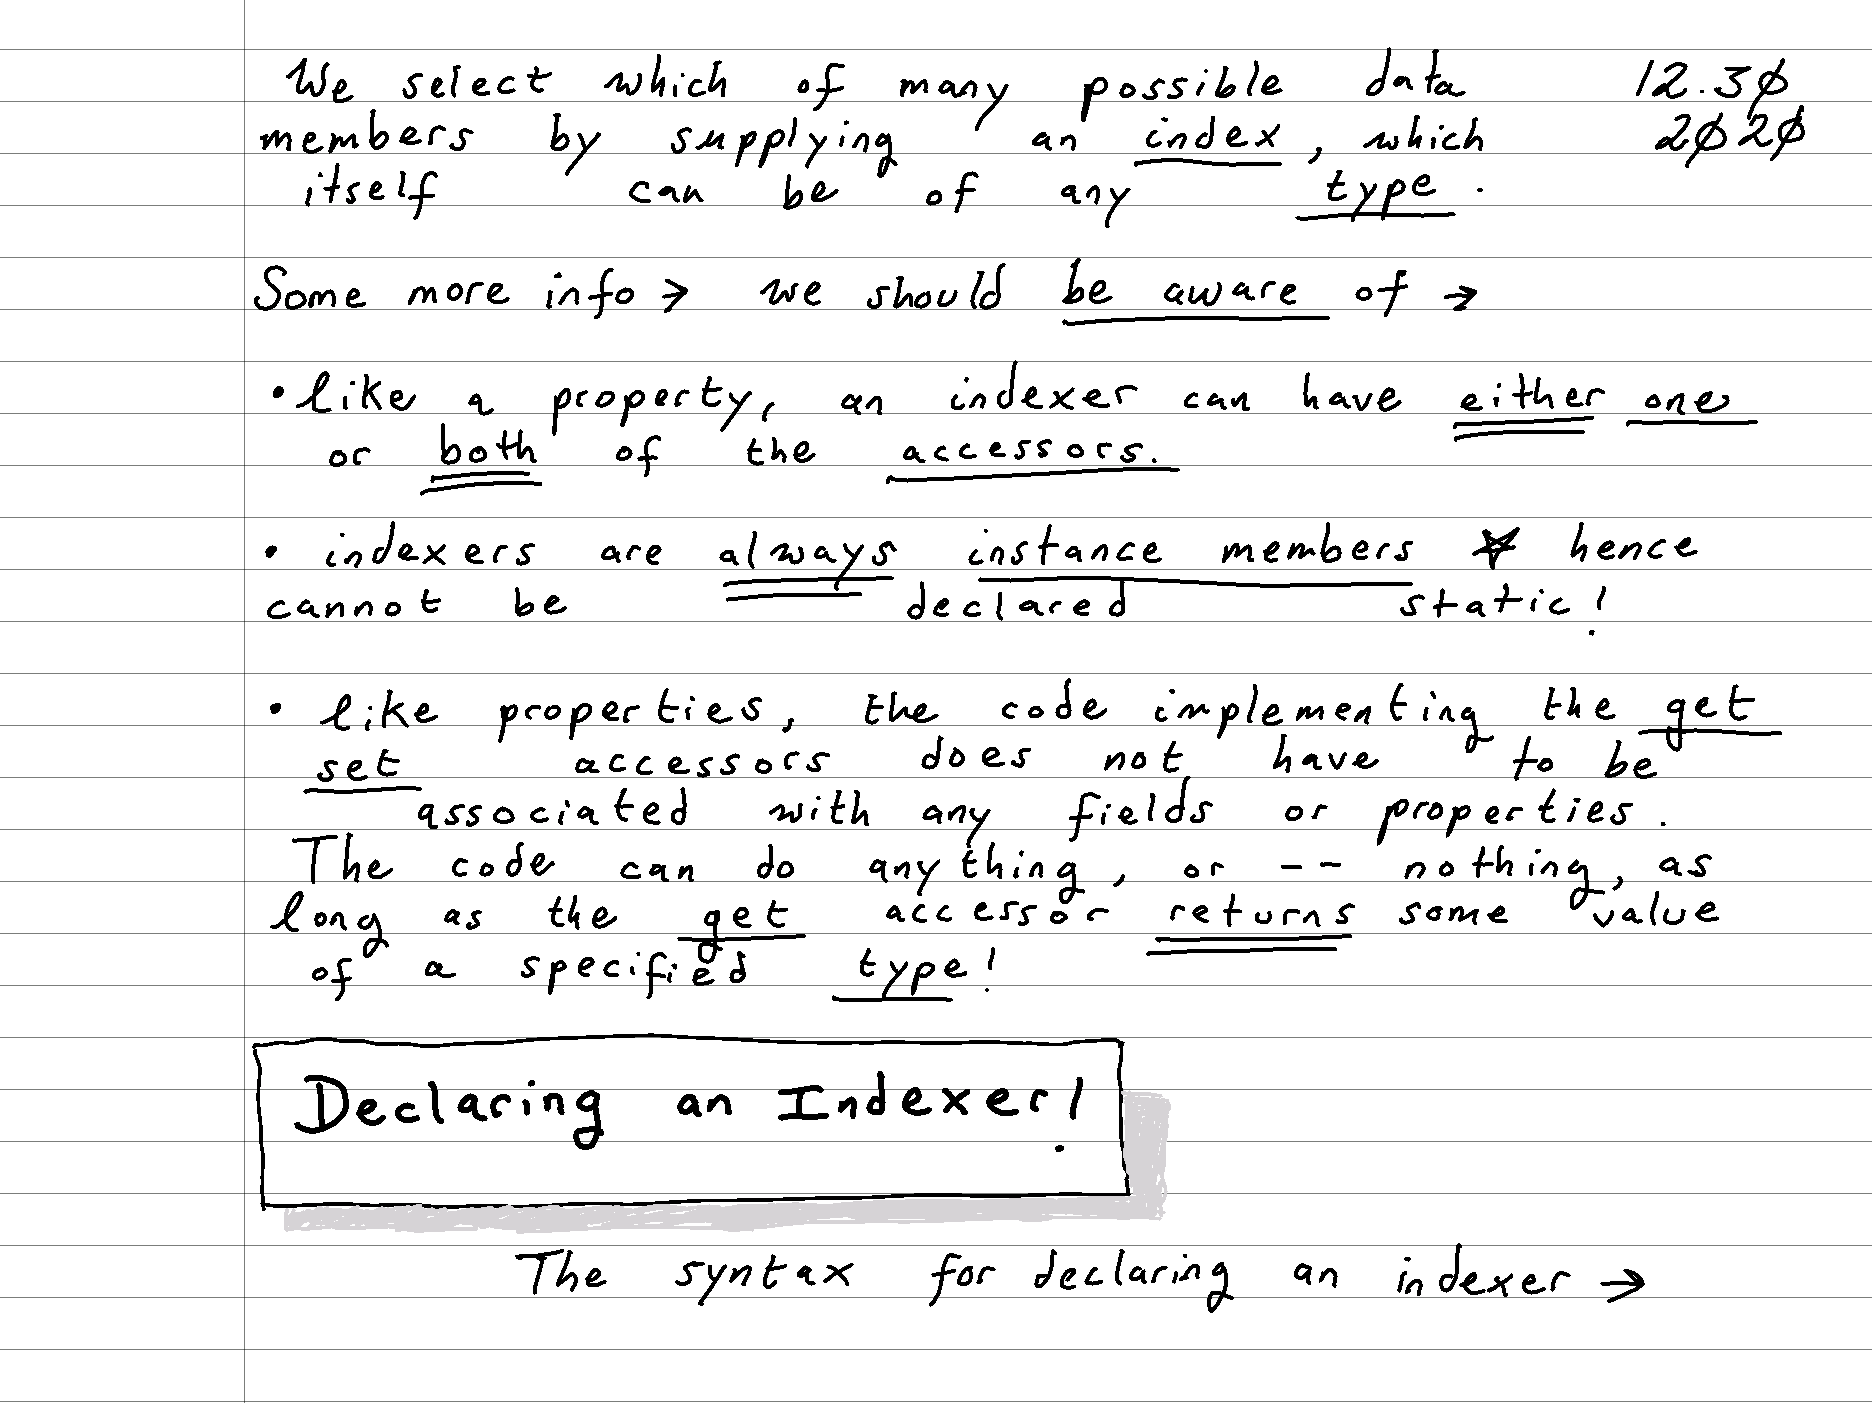 We select which of many possible data 12.30
members by supplying an index, which 2020
itself can be of any type.
Some more info → we should be aware of →
• like a property, an indexer can have either one
or both of the accessors.
• indexers are always instance members ☆ hence
cannot be declared static!
• like properties, the code implementing the get
set accessors does not have to be
associated with any fields or properties.
The code can do anything, or -- nothing, as
long as the get accessor returns some value
of a specified type!
Declaring an Indexer!
The syntax for declaring an indexer →